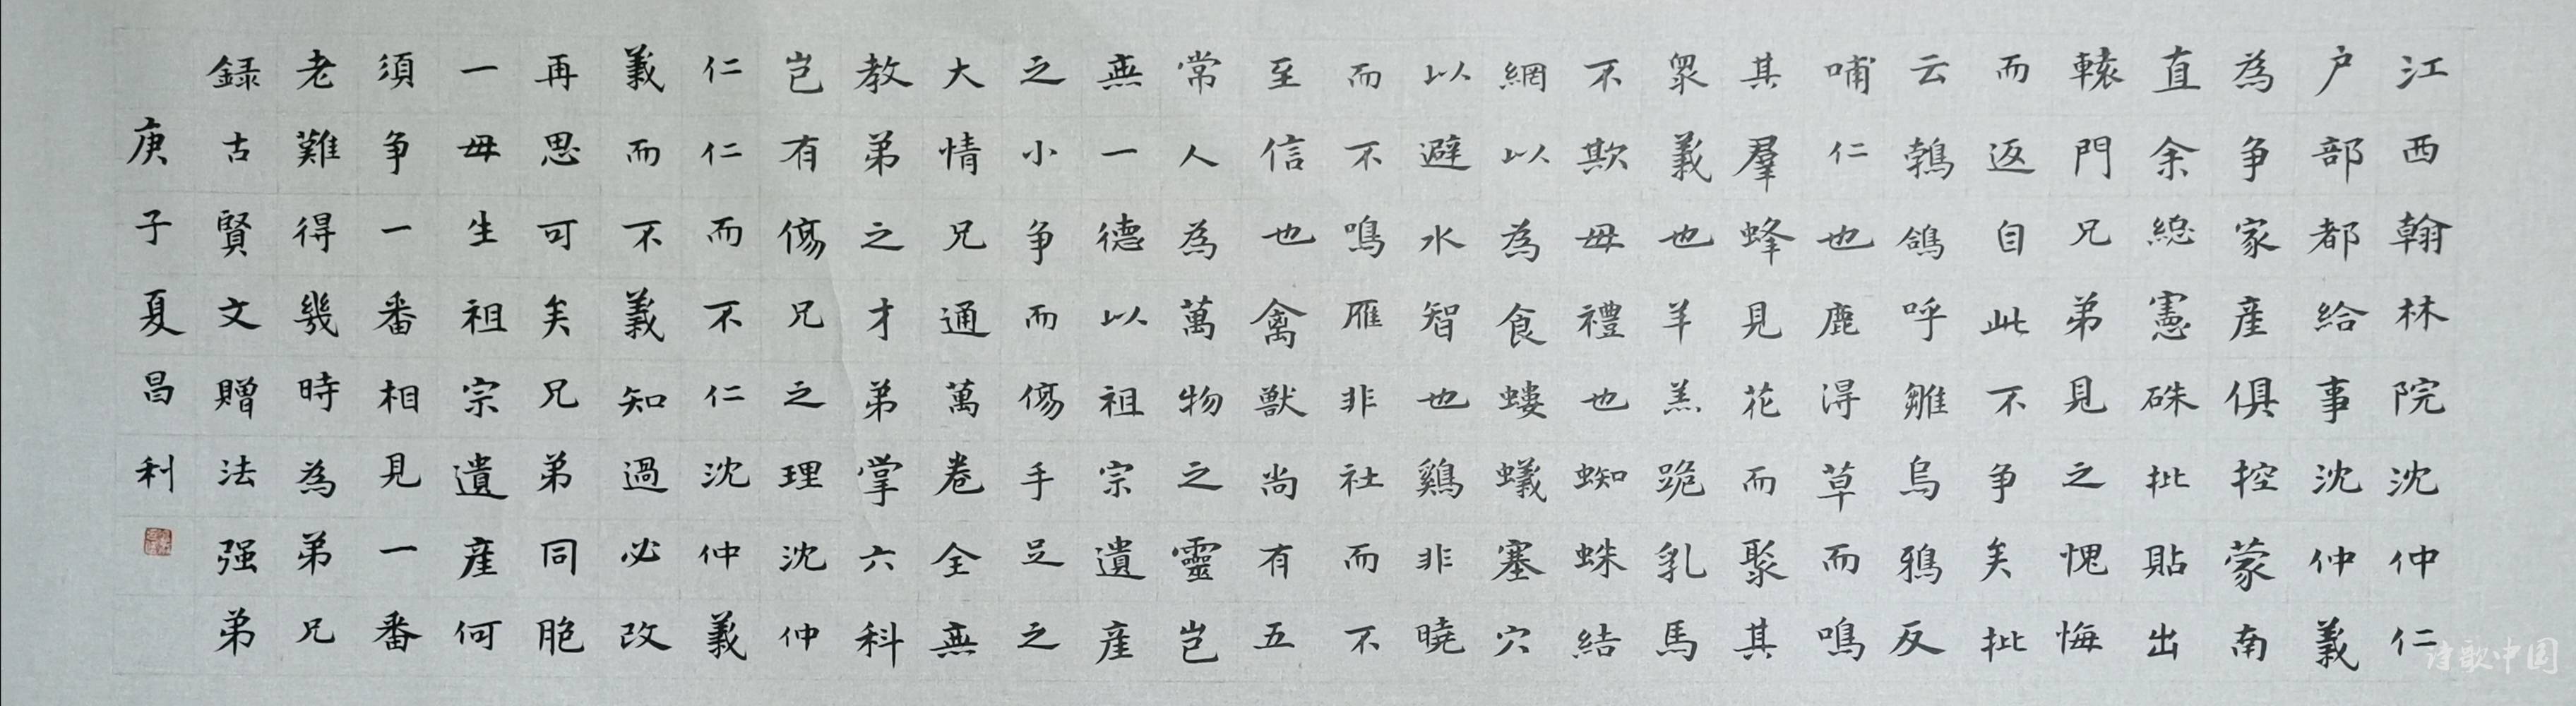 江西翰林院沈仲仁
户部都給事沈仲義
為争家產俱控蒙南
直余總憲硃批貼出
轅門兄弟見之愧悔
而返自此不争矣批
云鶉鴿呼雛烏鴉反
哺仁也鹿得草而鳴
其羣蜂見花而聚其
衆義也羊羔跪乳馬
不欺毋禮也蜘蛛結
網以為食螻蟻塞穴
以避水智也鷄非曉
而不鳴雁非社而不
至信也禽獸尚有五
常人為萬物之靈豈
無一德以祖宗遺產
之小争而傷手足之
大情兄通萬卷全無
教弟之才弟掌六科
豈有傷兄之理沈仲
仁仁而不仁沈仲義
義而不義知過必改
再思可矣兄弟同胞
一毋生祖宗遺產何
須争一番相見一番
老難得幾時為弟兄
録古賢文贈法强弟
庚子夏昌利
诗歌中国